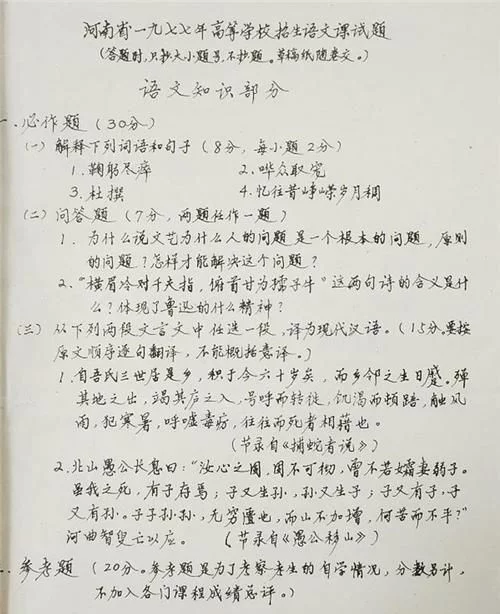 河南省一九七七年高等学校招生语文课试题
(答题时,只抄大小题号,不抄题。草稿纸随卷交。)
语文知识部分
一.必作题(30分)
(一)解释下列词语和句子(8分,每小题2分)
1.鞠躬尽瘁 2.哗众取宠
3.杜撰 4.忆往昔峥嵘岁月稠
(二)问答题(7分,两题任作一题)
1.为什么说文艺为什么人的问题是一个根本的问题,原则
的问题?怎样才能解决这个问题?
2."横眉冷对千夫指,俯首甘为孺子牛"这两句诗的含义是什
么?体现了鲁迅的什么精神?
(三)从下列两段文言文中任选一段,译为现代汉语。(15分。要按
原文顺序逐句翻译,不能概括意译。)
1.自吾氏三世居是乡,积于今六十岁矣,而乡邻之生日蹙。殚
其地之出,竭其庐之入,号呼而转徙,饥渴而顿踣,触风
雨,犯寒暑,呼嘘毒疠,往往而死者相藉也。
(节录自《捕蛇者说》)
2.北山愚公长息曰:"汝心之固,固不可彻,曾不若孀妻弱子。
虽我之死,有子存焉;子又生孙,孙又生子;子又有子,子
又有孙。子子孙孙,无穷匮也,而山不加增,何苦而不平?"
河曲智叟亡以应。(节录自《愚公移山》)
参考题(20分。参考题是为了考察考生的自学情况,分数另计,
不加入各门课程成绩总评。)